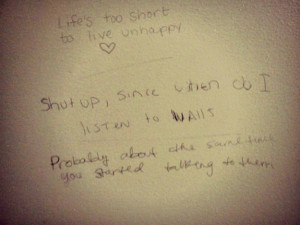 Life's too short
to live unhappy
♡
Shut up, since when do I
listen to walls
Probably about the same time
you started talking to them